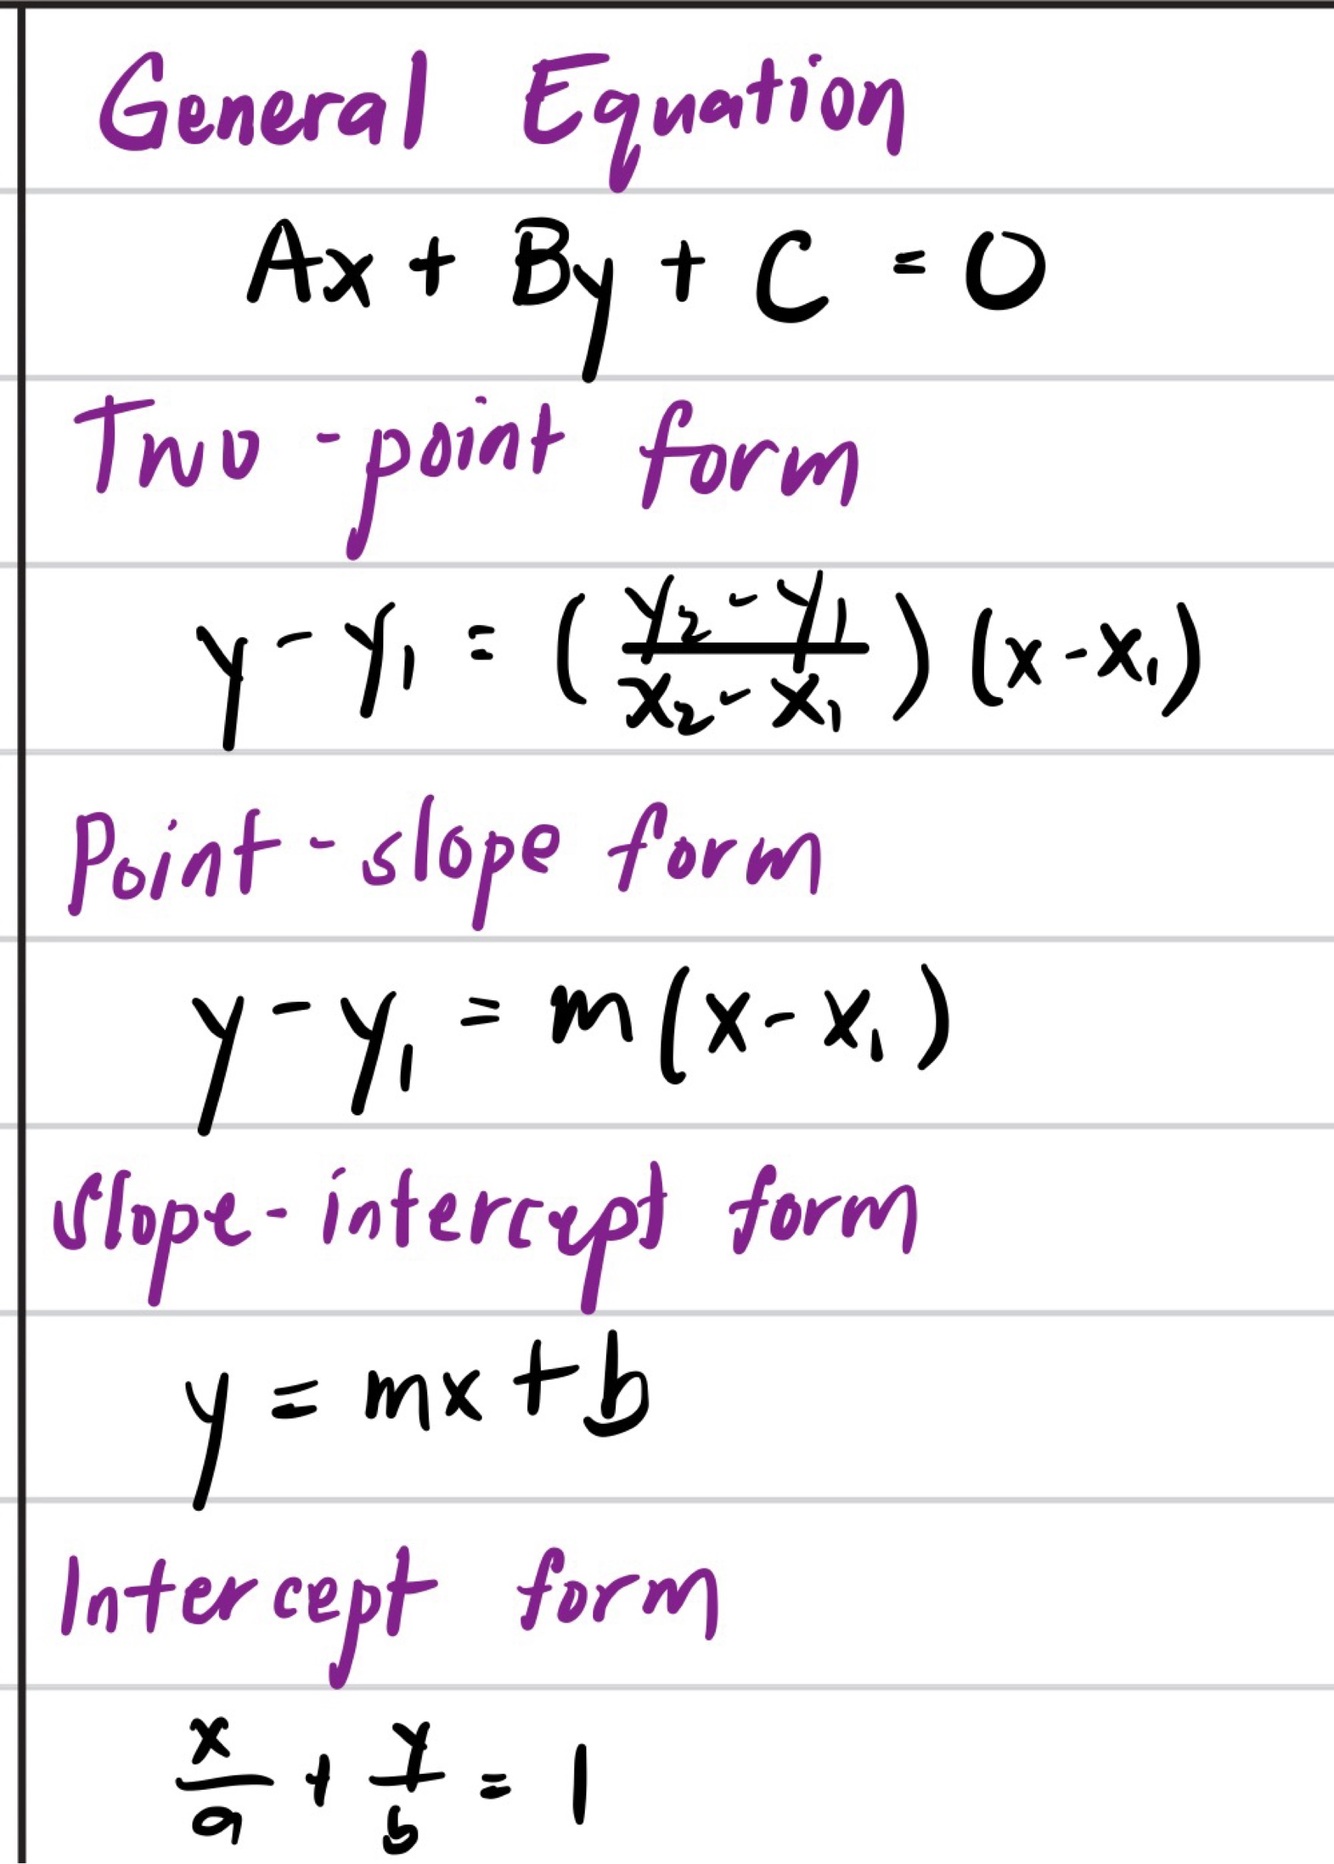 General Equation
Ax + By + C = 0
Two-point form
y - y₁ = (y₂ - y₁ / x₂ - x₁) (x - x₁)
Point-slope form
y - y₁ = m(x - x₁)
Slope-intercept form
y = mx + b
Intercept form
x/a + y/b = 1